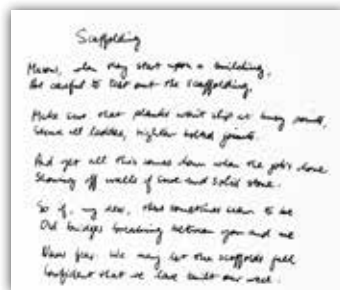 Scaffolding
Masons, when they start upon a building,
Are careful to test out the scaffolding;
Make sure that planks won't slip at busy points,
Secure all ladders, tighten bolted joints.
And yet all this comes down when the job's done
Showing off walls of sure and solid stone.
So if, my dear, there sometimes seem to be
Old bridges breaking between you and me
Never fear. We may let the scaffolds fall
Confident that we have built our wall.